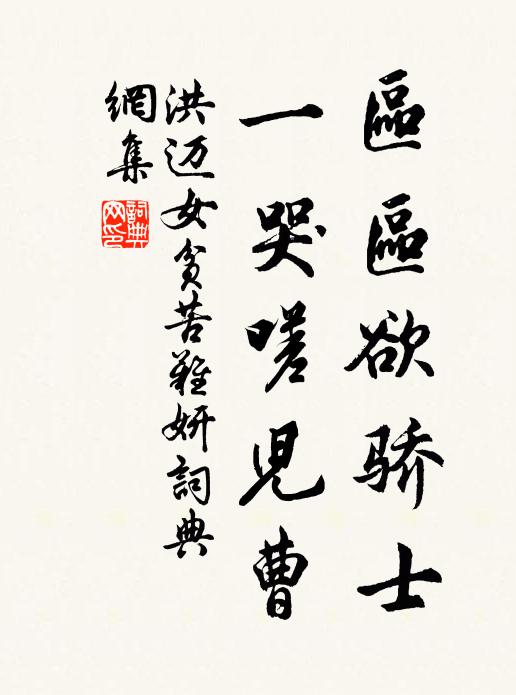 區區欲骄士
一哭嗟兒曹
洪迈女貧苦難妍詞典
網集
詞典網印